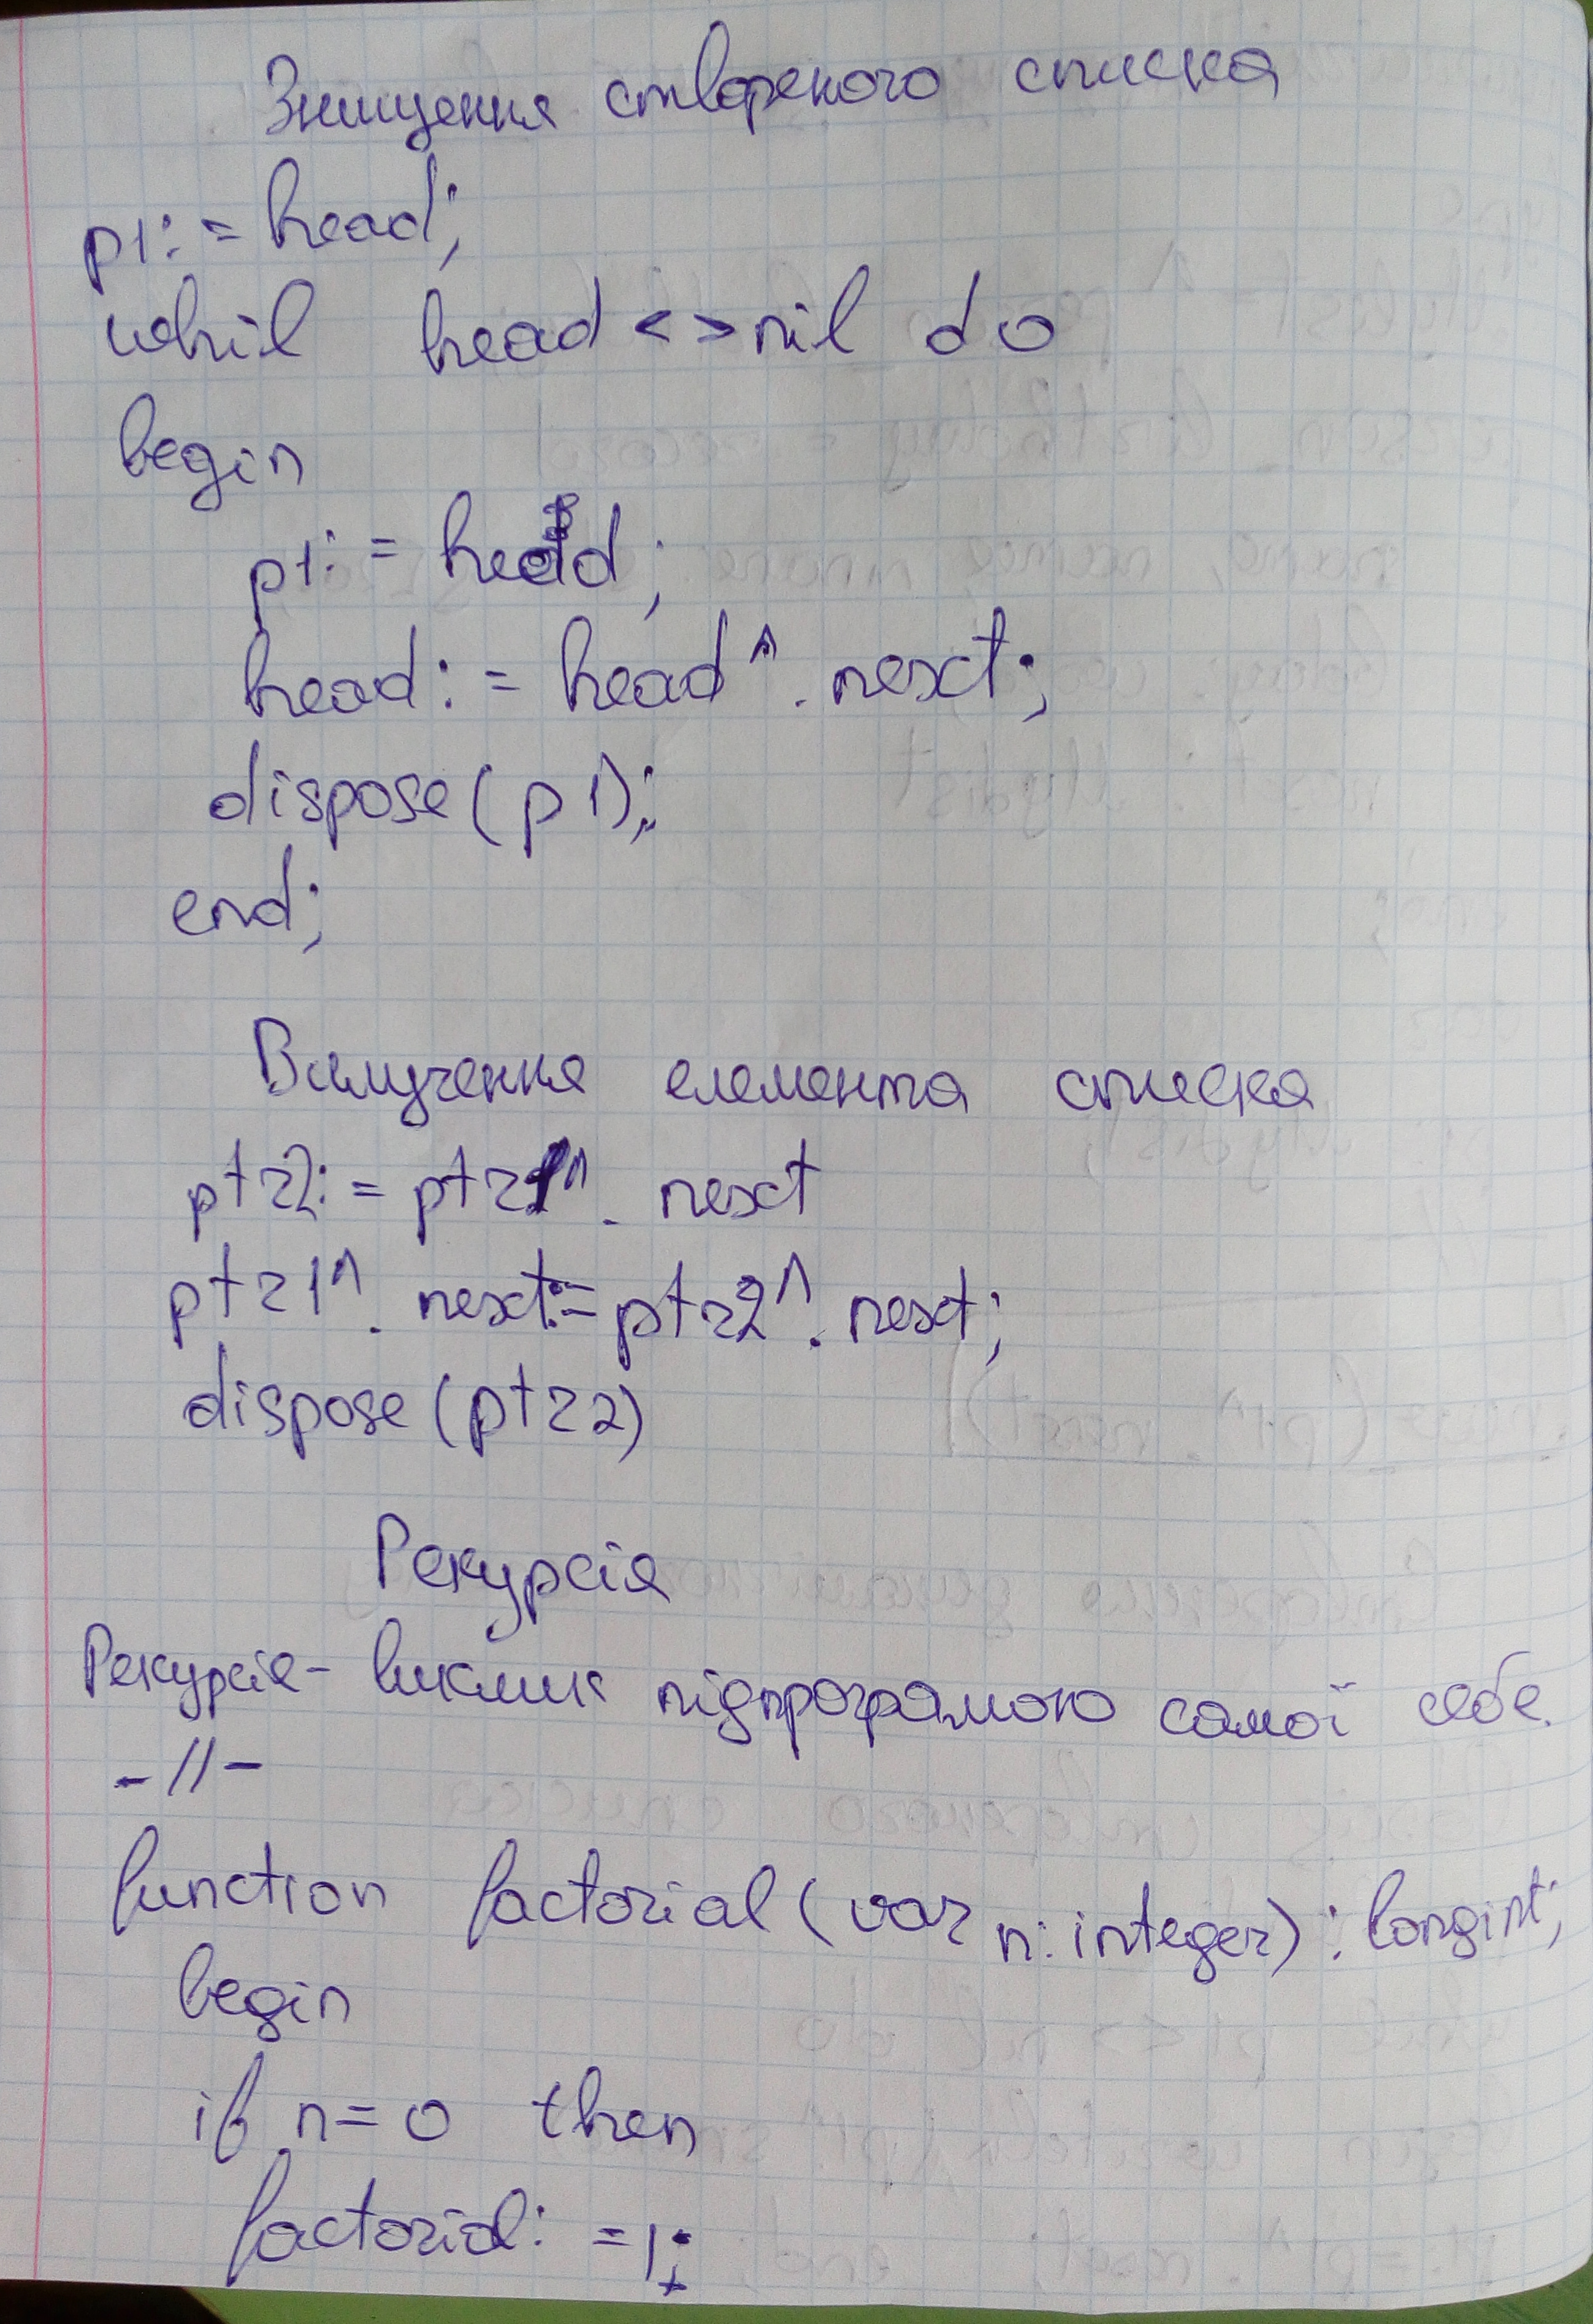 Знищення створеного списка
p1:=head;
whil head<>nil do
begin
p1:=head;
head:=head^.next;
dispose(p1);
end;
Вилучення елемента списка
ptr2:=ptr1^.next
ptr1^.next:=ptr2^.next;
dispose(ptr2)
Рекурсія
Рекурсія- виклик підпрограмою самої себе.
-//-
function factorial(var n:integer):longint;
begin
if n=0 then
factorial:=1;